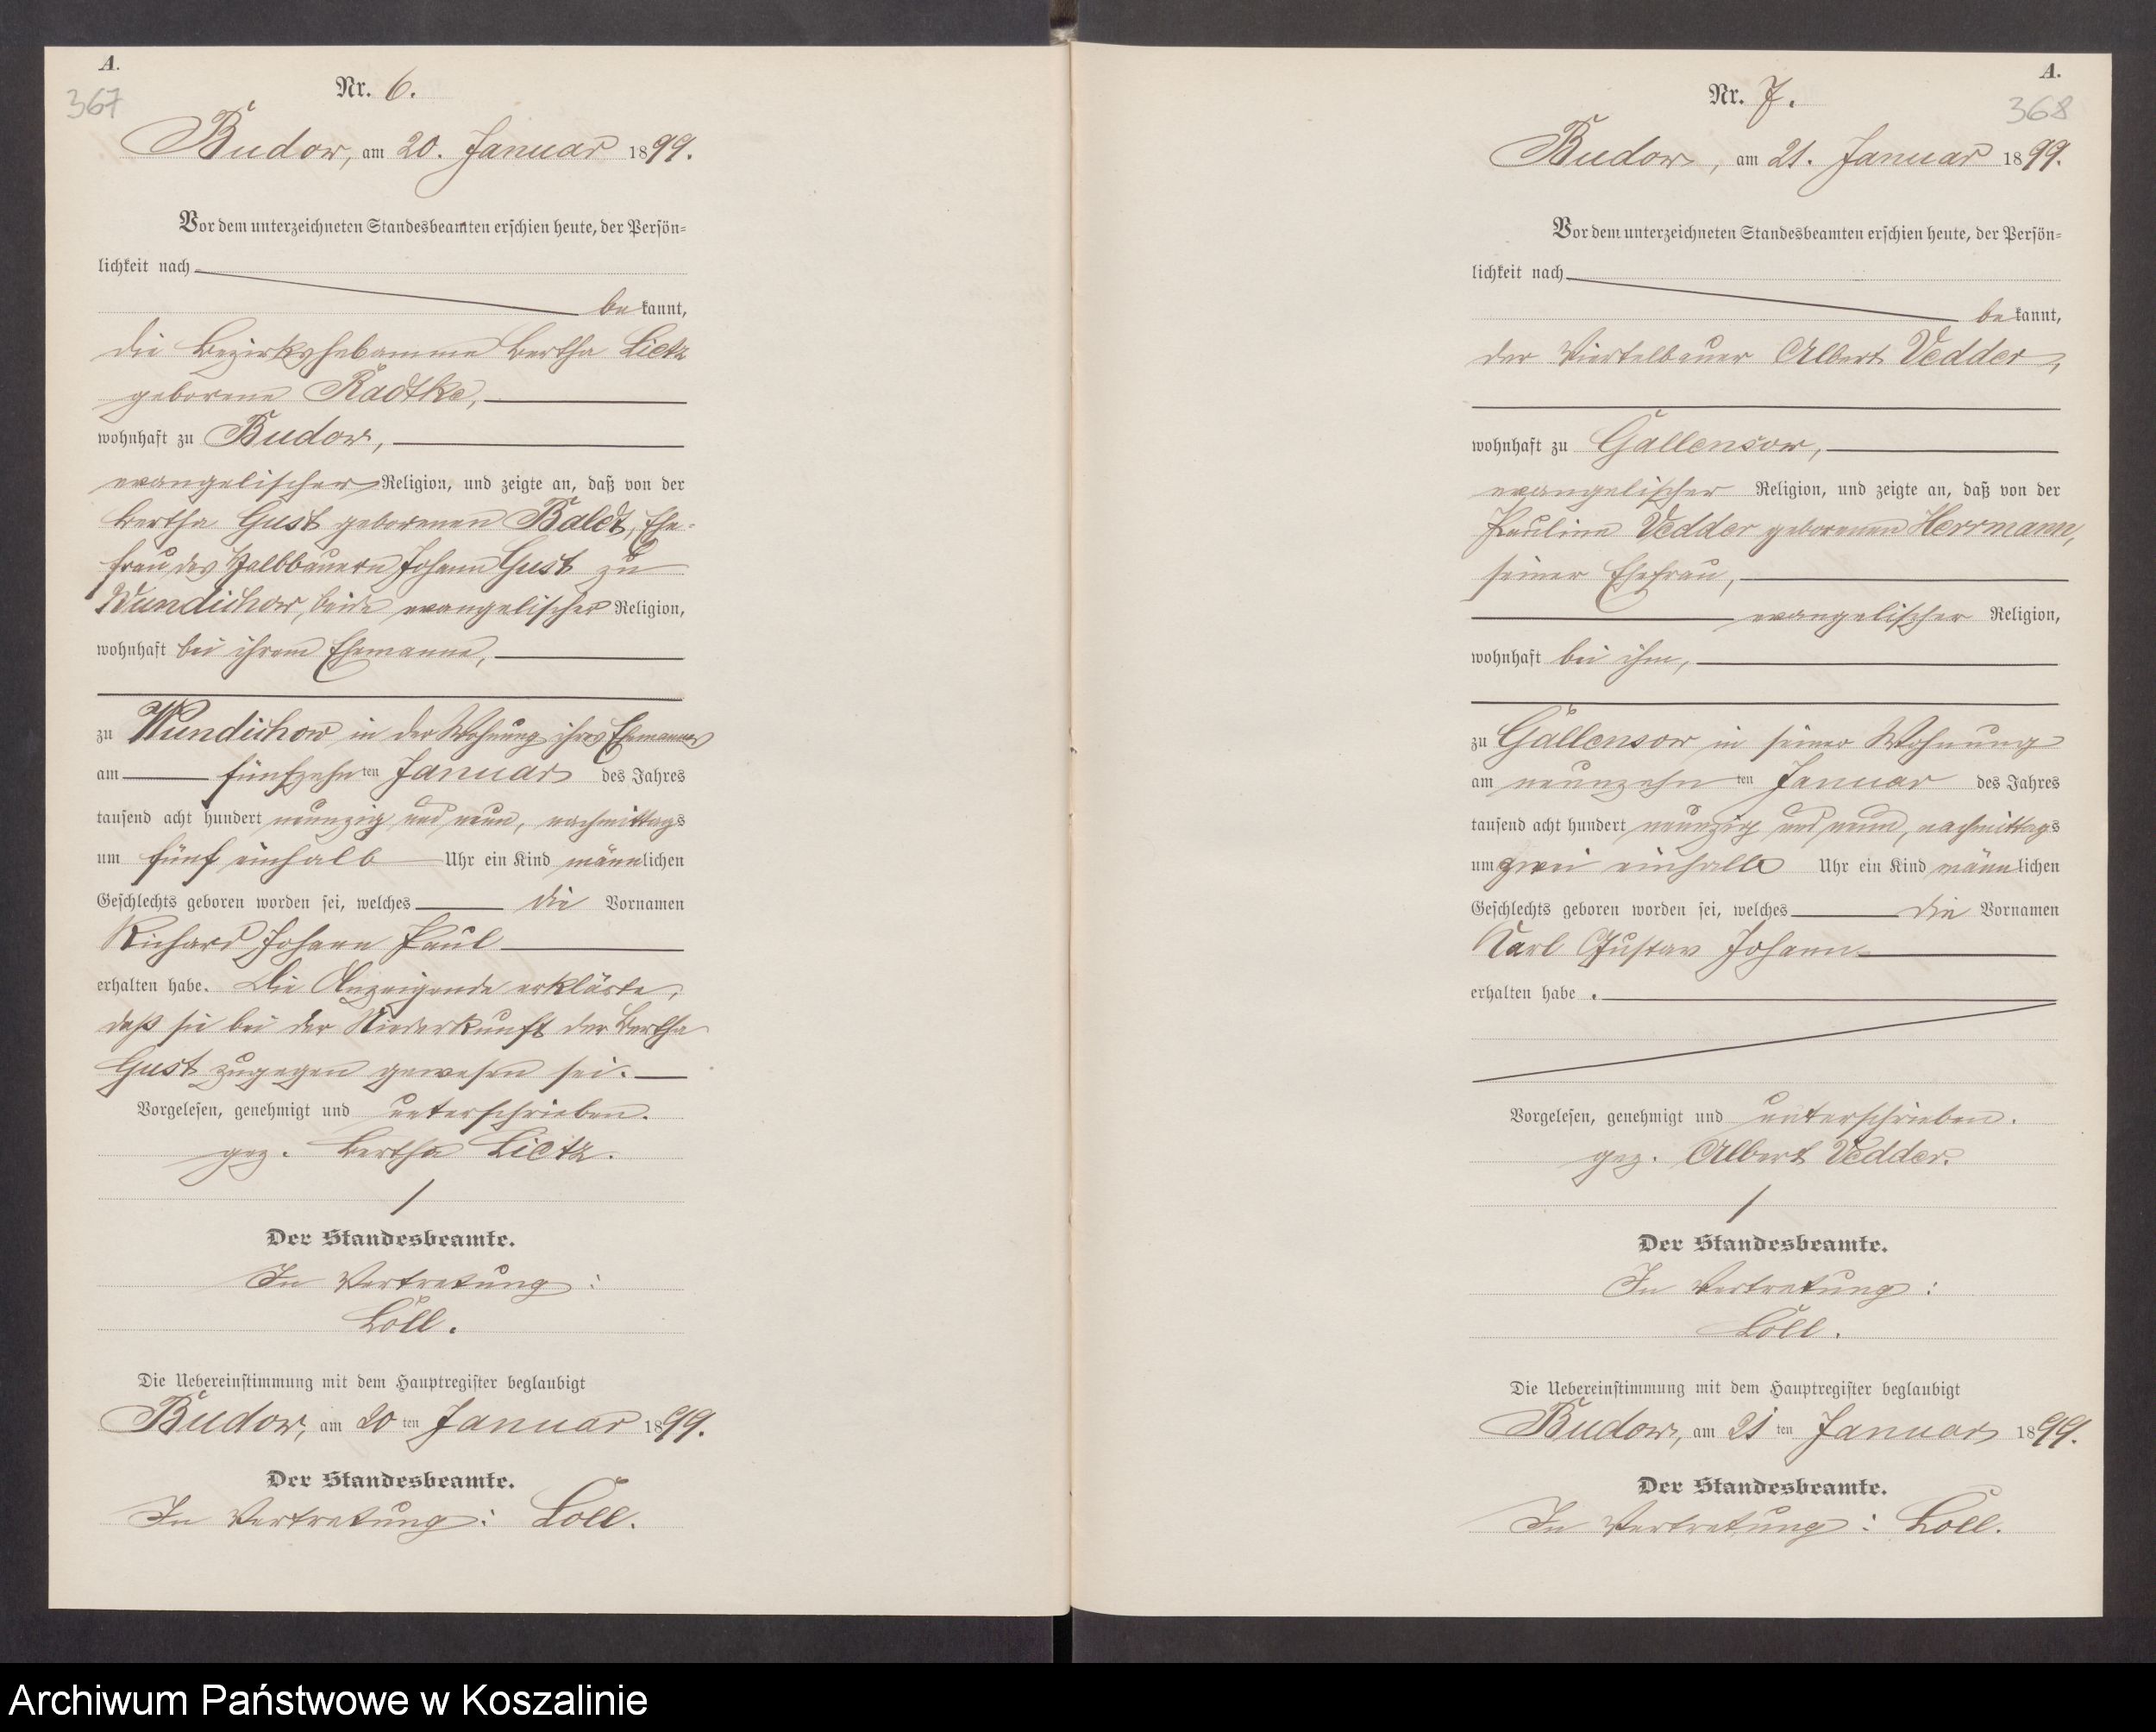 A.
367
Nr. 6.
Budow, am 20. Januar 1899.
Vor dem unterzeichneten Standesbeamten erschien heute, der Persön-
lichkeit nach
bekannt,
die Bezirkshebamme Bertha Lietz
geborene Radtke,
wohnhaft zu Budow,
evangelischer Religion, und zeigte an, daß von der
Bertha Gust geborenen Baldt, Ehe-
frau des Halbbauern Johann Gust zu
Wundichow, beide evangelischer Religion,
wohnhaft bei ihrem Ehemanne,
zu Wundichow in der Wohnung ihres Ehemannes
am fünfzehnten Januar des Jahres
tausend acht hundert neunzig und neun, nachmittags
um fünf einhalb Uhr ein Kind männlichen
Geschlechts geboren worden sei, welches die Vornamen
Richard Johann Paul
erhalten habe. Die Anzeigende erklärte,
daß sie bei der Niederkunft der Bertha
Gust zugegen gewesen sei.
Vorgelesen, genehmigt und unterschrieben.
gez. Bertha Lietz.
Der Standesbeamte.
In Vertretung:
Loll.
Die Uebereinstimmung mit dem Hauptregister beglaubigt
Budow, am 20ten Januar 1899.
Der Standesbeamte.
In Vertretung: Loll.
A.
368
Nr. 7.
Budow, am 21. Januar 1899.
Vor dem unterzeichneten Standesbeamten erschien heute, der Persön-
lichkeit nach
bekannt,
der Viertelbauer Albert Vedder,
wohnhaft zu Gallensow,
evangelischer Religion, und zeigte an, daß von der
Pauline Vedder geborenen Herrmann,
seiner Ehefrau,
evangelischer Religion,
wohnhaft bei ihm,
zu Gallensow in seiner Wohnung
am neunzehnten Januar des Jahres
tausend acht hundert neunzig und neun, nachmittags
um zwei einhalb Uhr ein Kind männlichen
Geschlechts geboren worden sei, welches die Vornamen
Karl Gustav Johann
erhalten habe.
Vorgelesen, genehmigt und unterschrieben.
gez. Albert Vedder.
Der Standesbeamte.
In Vertretung:
Loll.
Die Uebereinstimmung mit dem Hauptregister beglaubigt
Budow, am 21ten Januar 1899.
Der Standesbeamte.
In Vertretung: Loll.
Archiwum Państwowe w Koszalinie